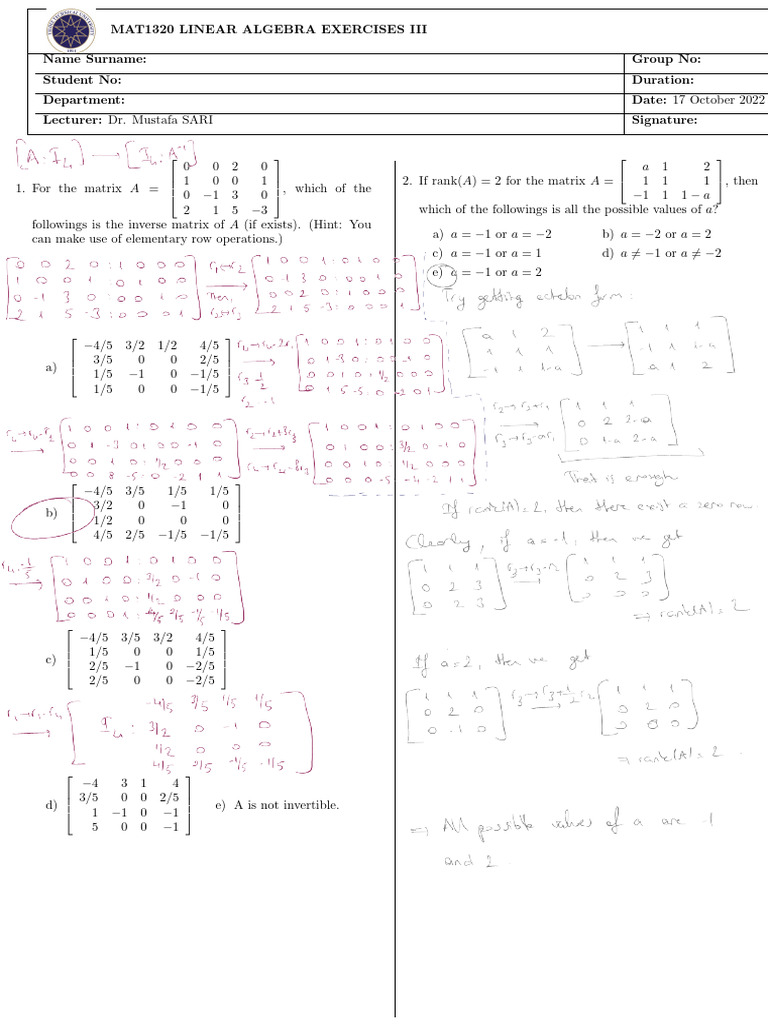 MAT1320 LINEAR ALGEBRA EXERCISES III
Name Surname:
Group No:
Student No:
Duration:
Department:
Date: 17 October 2022
Lecturer: Dr. Mustafa SARI
Signature:
[A : I₄] → [I₄ : A⁻¹]
1. For the matrix A =
0 0 2 0
1 0 0 1
0 −1 3 0
2 1 5 −3
, which of the
followings is the inverse matrix of A (if exists). (Hint: You
can make use of elementary row operations.)
0 0 2 0 : 1 0 0 0
1 0 0 1 : 0 1 0 0
0 -1 3 0 : 0 0 1 0
2 1 5 -3 : 0 0 0 1
r₁↔r₂
Then,
r₂↔r₃
1 0 0 1 : 0 1 0 0
0 -1 3 0 : 0 0 1 0
0 0 2 0 : 1 0 0 0
2 1 5 -3 : 0 0 0 1
a)
−4/5 3/2 1/2 4/5
3/5 0 0 2/5
1/5 −1 0 −1/5
1/5 0 0 −1/5
r₄→r₄-2r₁
r₃·1/2
r₂·-1
1 0 0 1 : 0 1 0 0
0 1 -3 0 : 0 0 -1 0
0 0 1 0 : 1/2 0 0 0
0 1 5 -5 : 0 -2 0 1
r₄→r₄-r₂
1 0 0 1 : 0 1 0 0
0 1 -3 0 : 0 0 -1 0
0 0 1 0 : 1/2 0 0 0
0 0 8 -5 : 0 -2 1 1
r₂→r₂+3r₃
r₄→r₄-8r₃
1 0 0 1 : 0 1 0 0
0 1 0 0 : 3/2 0 -1 0
0 0 1 0 : 1/2 0 0 0
0 0 0 -5 : -4 -2 1 1
b)
−4/5 3/5 1/5 1/5
3/2 0 −1 0
1/2 0 0 0
4/5 2/5 −1/5 −1/5
r₄·-1/5
1 0 0 1 : 0 1 0 0
0 1 0 0 : 3/2 0 -1 0
0 0 1 0 : 1/2 0 0 0
0 0 0 1 : 4/5 2/5 -1/5 -1/5
c)
−4/5 3/5 3/2 4/5
1/5 0 0 1/5
2/5 −1 0 −2/5
2/5 0 0 −2/5
r₁→r₁-r₄
-4/5 3/5 1/5 1/5
I₄ : 3/2 0 -1 0
1/2 0 0 0
4/5 2/5 -1/5 -1/5
d)
−4 3 1 4
3/5 0 0 2/5
1 −1 0 −1
5 0 0 −1
e) A is not invertible.
2. If rank(A) = 2 for the matrix A =
a 1 2
1 1 1
−1 1 1 − a
, then
which of the followings is all the possible values of a?
a) a = −1 or a = −2
b) a = −2 or a = 2
c) a = −1 or a = 1
d) a ≠ −1 or a ≠ −2
e) a = −1 or a = 2
Try getting echelon form:
a 1 2
1 1 1
-1 1 1-a
→
1 1 1
-1 1 1-a
a 1 2
r₂→r₂+r₁
r₃→r₃-ar₁
1 1 1
0 2 2-a
0 1-a 2-a
That is enough
If rank(A)=2, then there exist a zero row.
Clearly, if a=-1, then we get
1 1 1
0 2 3
0 2 3
r₃→r₃-r₂
1 1 1
0 2 3
0 0 0
⇒ rank(A)=2
If a=2, then we get
1 1 1
0 2 0
0 -1 0
r₃→r₃+1/2r₂
1 1 1
0 2 0
0 0 0
⇒ rank(A)=2.
⇒ All possible values of a are -1
and 2.